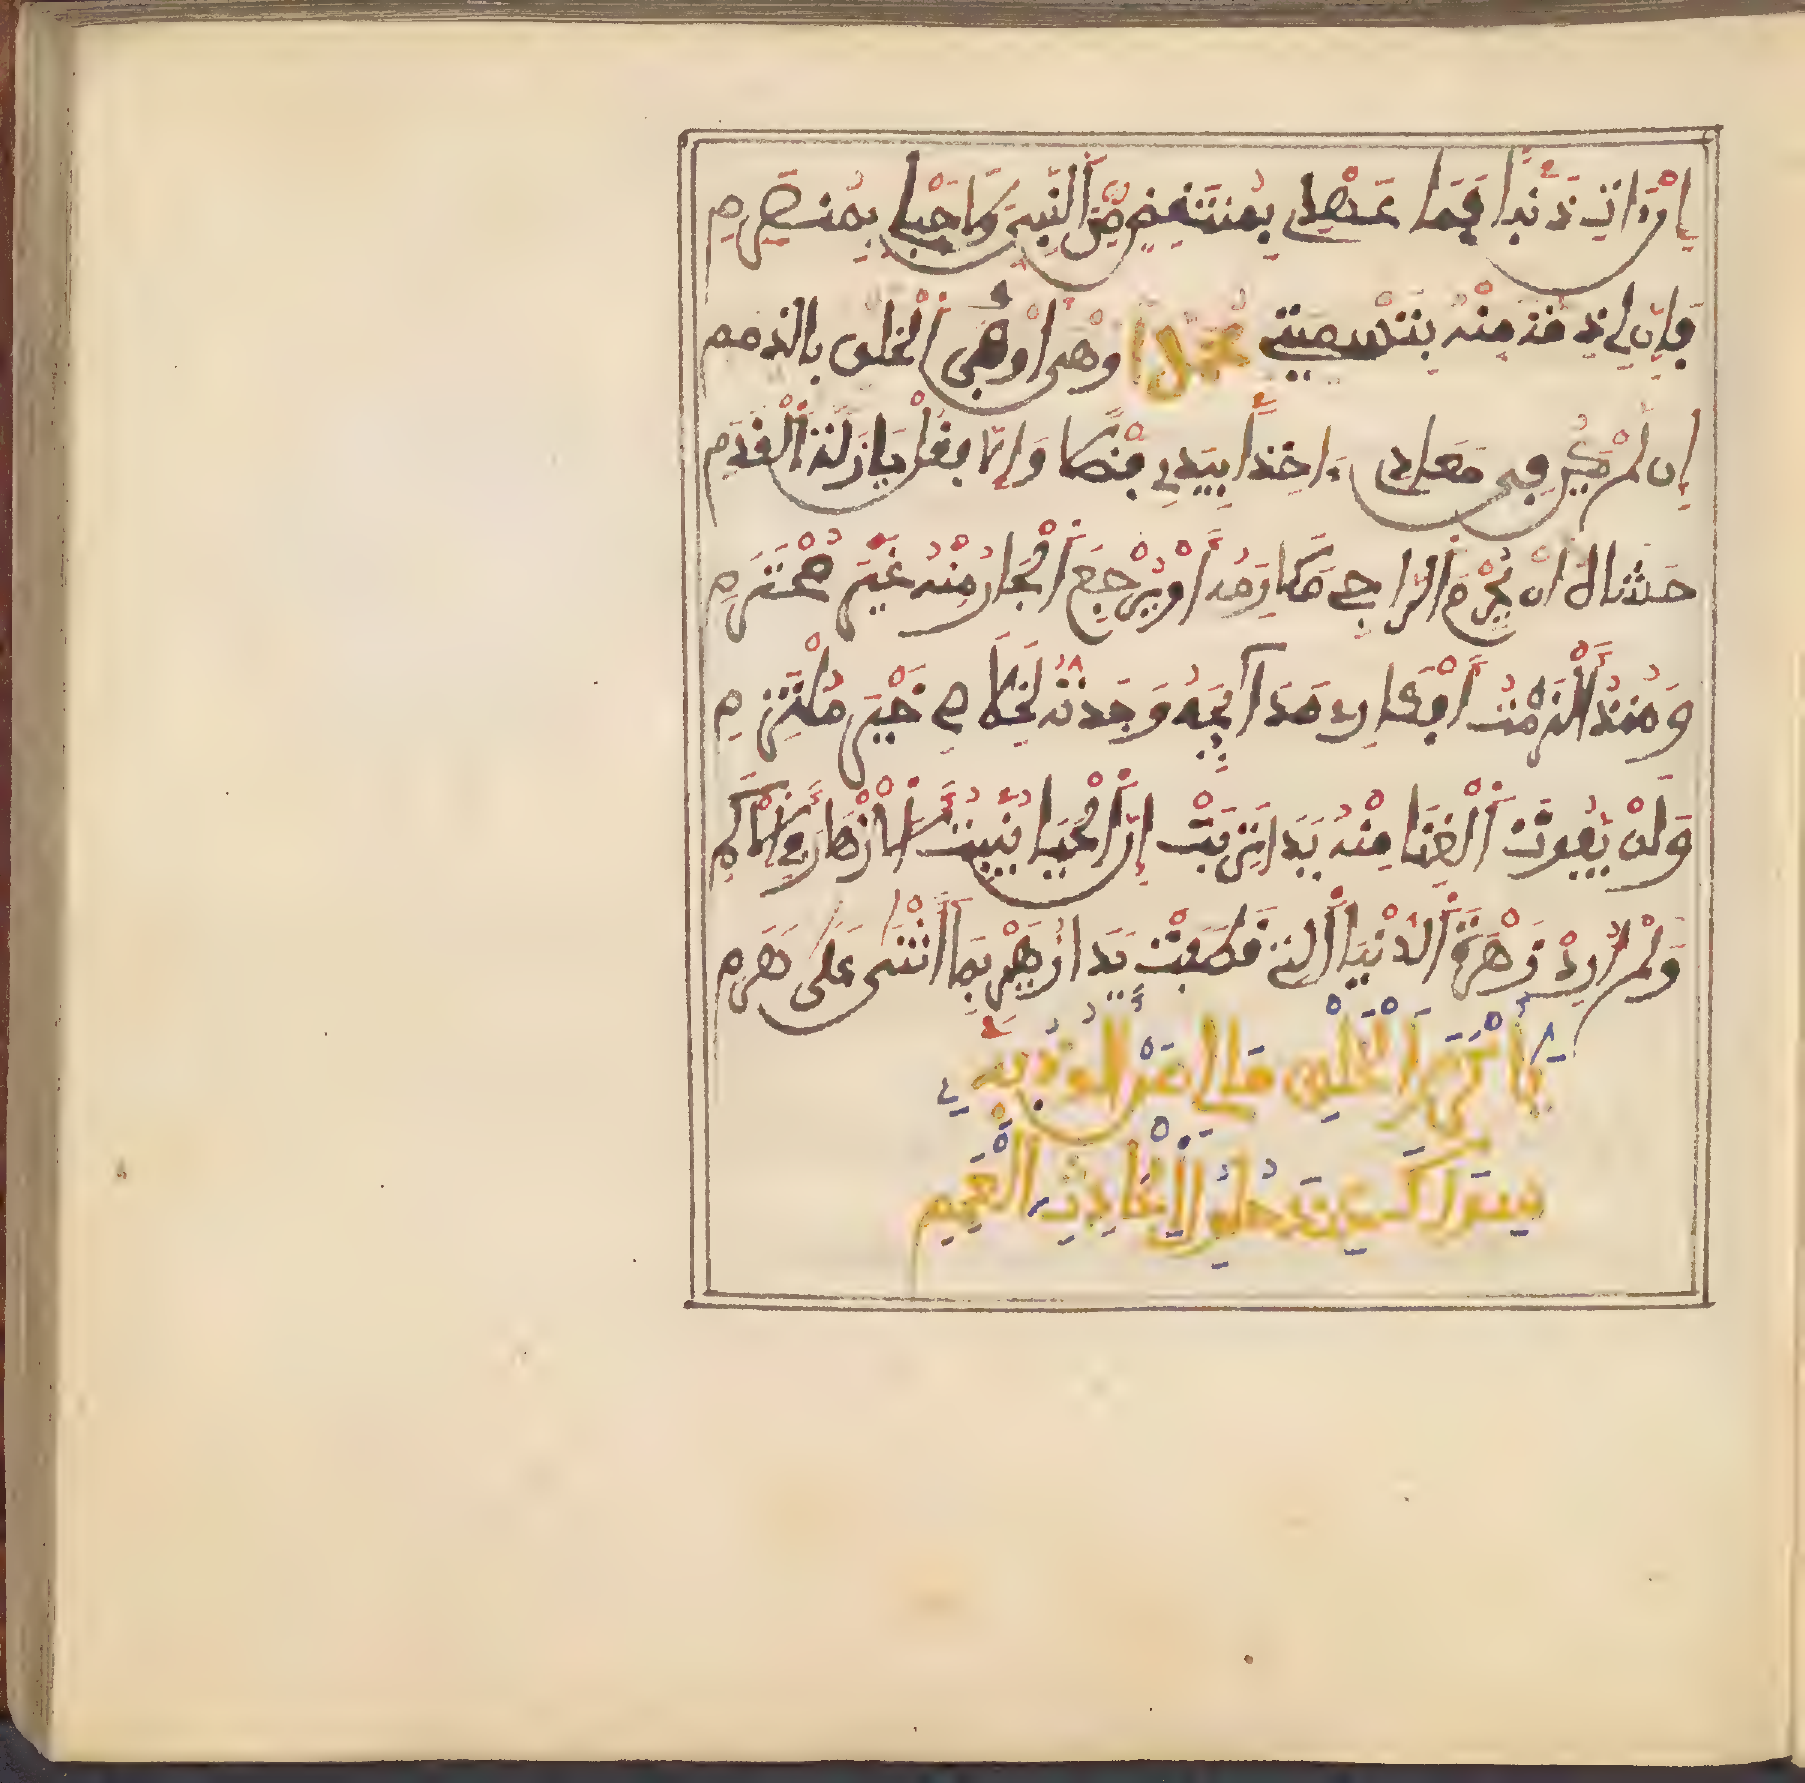 إِنْ ءَاتِ ذَنْبًا فَمَا عَهْدِي بِمُنْتَقِضٍ مِّنَ ٱلنَّبِيِّ وَلَا حَبْلِي بِمُنْصَرِمِ
فَإِنَّ لِي ذِمَّةً مِنْهُ بِتَسْمِيَتِي مُحَمَّدًا وَهْوَ أَوْفَى ٱلْخَلْقِ بِالذِّمَمِ
إِن لَّمْ يَكُنْ فِي مَعَادِي ءَاخِذًا بِيَدِي فَضْلًا وَإِلَّا فَقُلْ يَا زَلَّةَ ٱلْقَدَمِ
حَاشَاهُ أَنْ يُّحْرِمَ ٱلرَّاجِي مَكَارِمَهُ أَوْ يَرْجِعَ ٱلْجَارُ مِنْهُ غَيْرَ مُحْتَرَمِ
وَمُنْذُ أَلْزَمْتُ أَفْكَارِي مَدَآئِحَهُ وَجَدتُّهُ لِخَلَاصِي خَيْرَ مُلْتَزِمِ
وَلَنْ يَّفُوتَ ٱلْغِنَا مِنْهُ يَدًا تَرِبَتْ إِنَّ ٱلْحَيَا يُنْبِتُ ٱلْأَزْهَارَ فِي ٱلْأَكَمِ
وَلَمْ أُرِدْ زَهْرَةَ ٱلدُّنْيَا ٱلَّتِي ٱقْتَطَفَتْ يَدَا زُهَيْرٍ بِمَا أَثْنَى عَلَى هَرِمِ
يَا أَكْرَمَ ٱلْخَلْقِ مَا لِي مَنْ أَلُوذُ بِهِ
سِوَاكَ عِنْدَ حُلُولِ ٱلْحَادِثِ ٱلْعَمِمِ